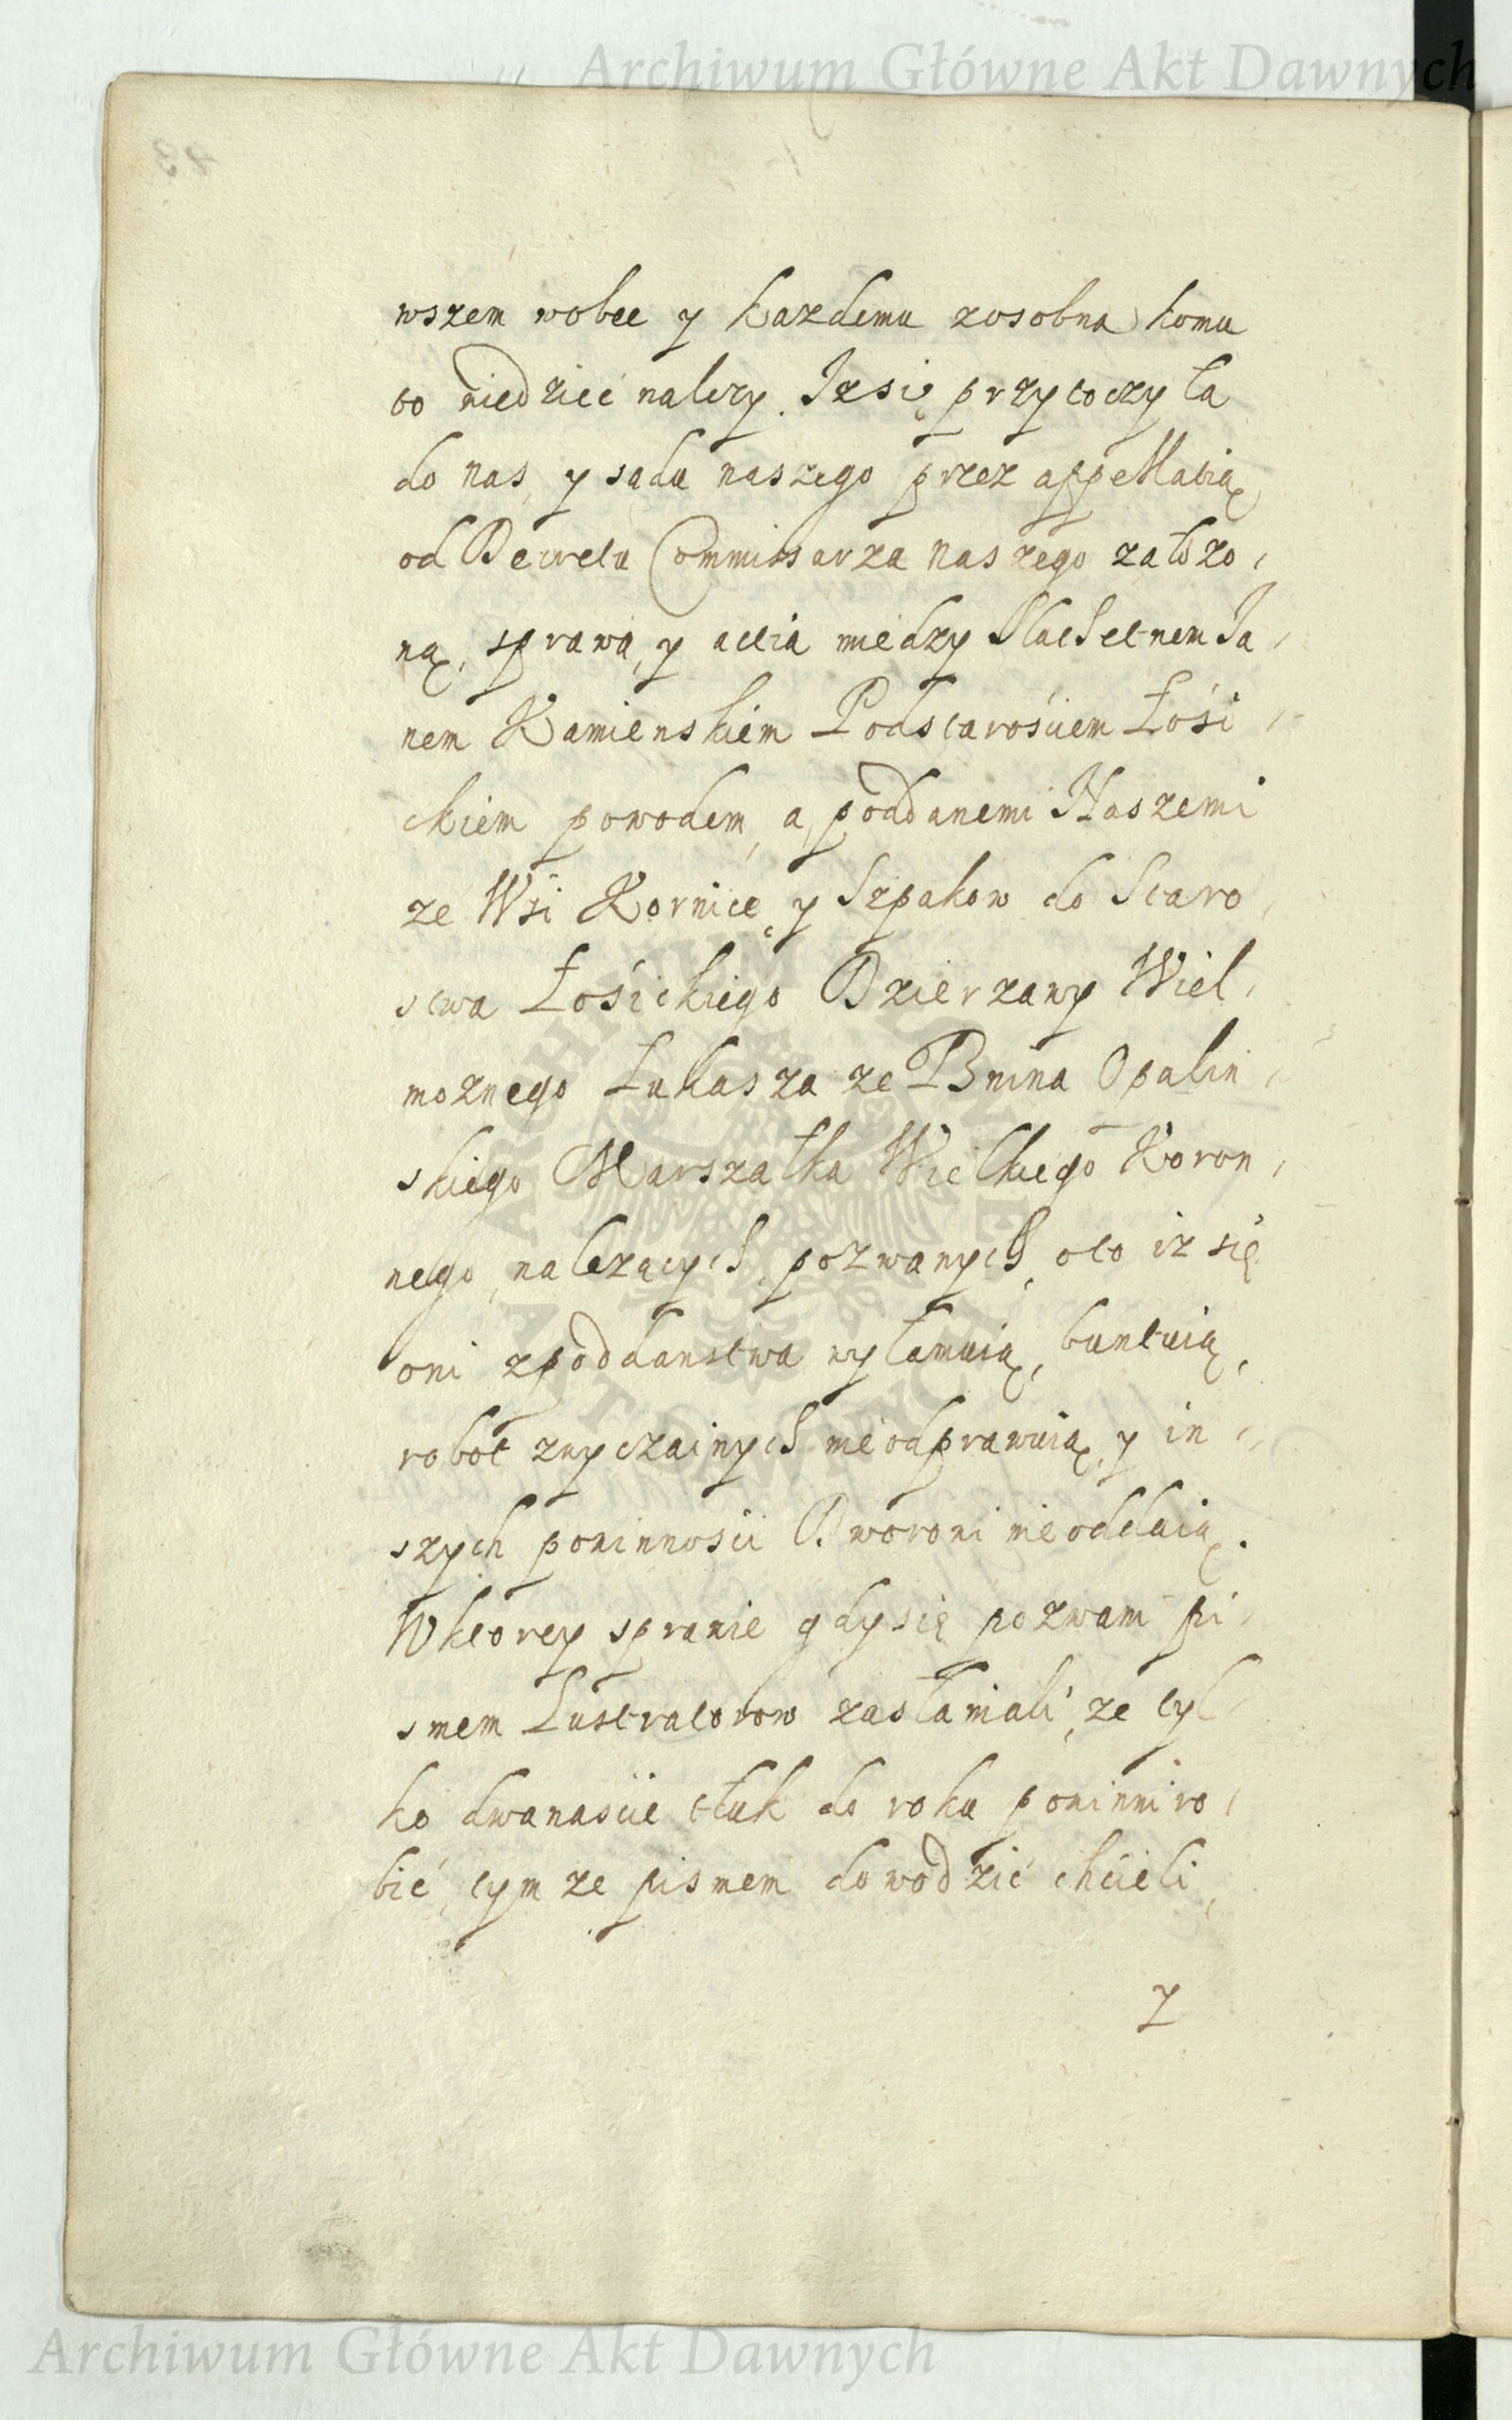 Archiwum Główne Akt Dawnych
wszem wobec y każdemu zosobna komu
to wiedzieć nalezy. Iz się przytoczyła
do nas, y sądu naszego przez appellatią
od Decretu Commissarza naszego założo,
ną, sprawa, y actia miedzy Slachetnem Ja,
nem Kamienskiem Podstarośćiem Łośi,
ckiem powodem, a, poddanemi Naszemi
ze Wśi Kornicę y Szpakow do Staro,
stwa Łośickiego Dzierzawy Wiel,
możnego Łukasza ze Bnina Opalin,
skiego Marszałka Wielkiego Koron,
nego, nalezących, pozwanych, oto iz się
oni zpoddanstwa wyłamuią, buntuią,
robot zwyczainych nieodprawuią, y in,
szych powinnosci Dworowi nieoddaią.
Wktorey sprawie gdysię pozwani pi,
smem Lustratorow zasłaniali, ze tyl,
ko dwanascie tłuk do roku powinni ro,
bić, tymze pismem dowodzić chcieli,
Y
Archiwum Główne Akt Dawnych